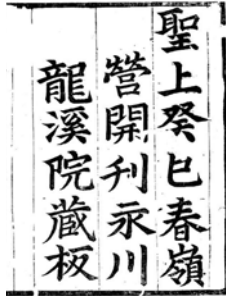 聖上癸巳春嶺
營開刋永川
龍溪院藏板